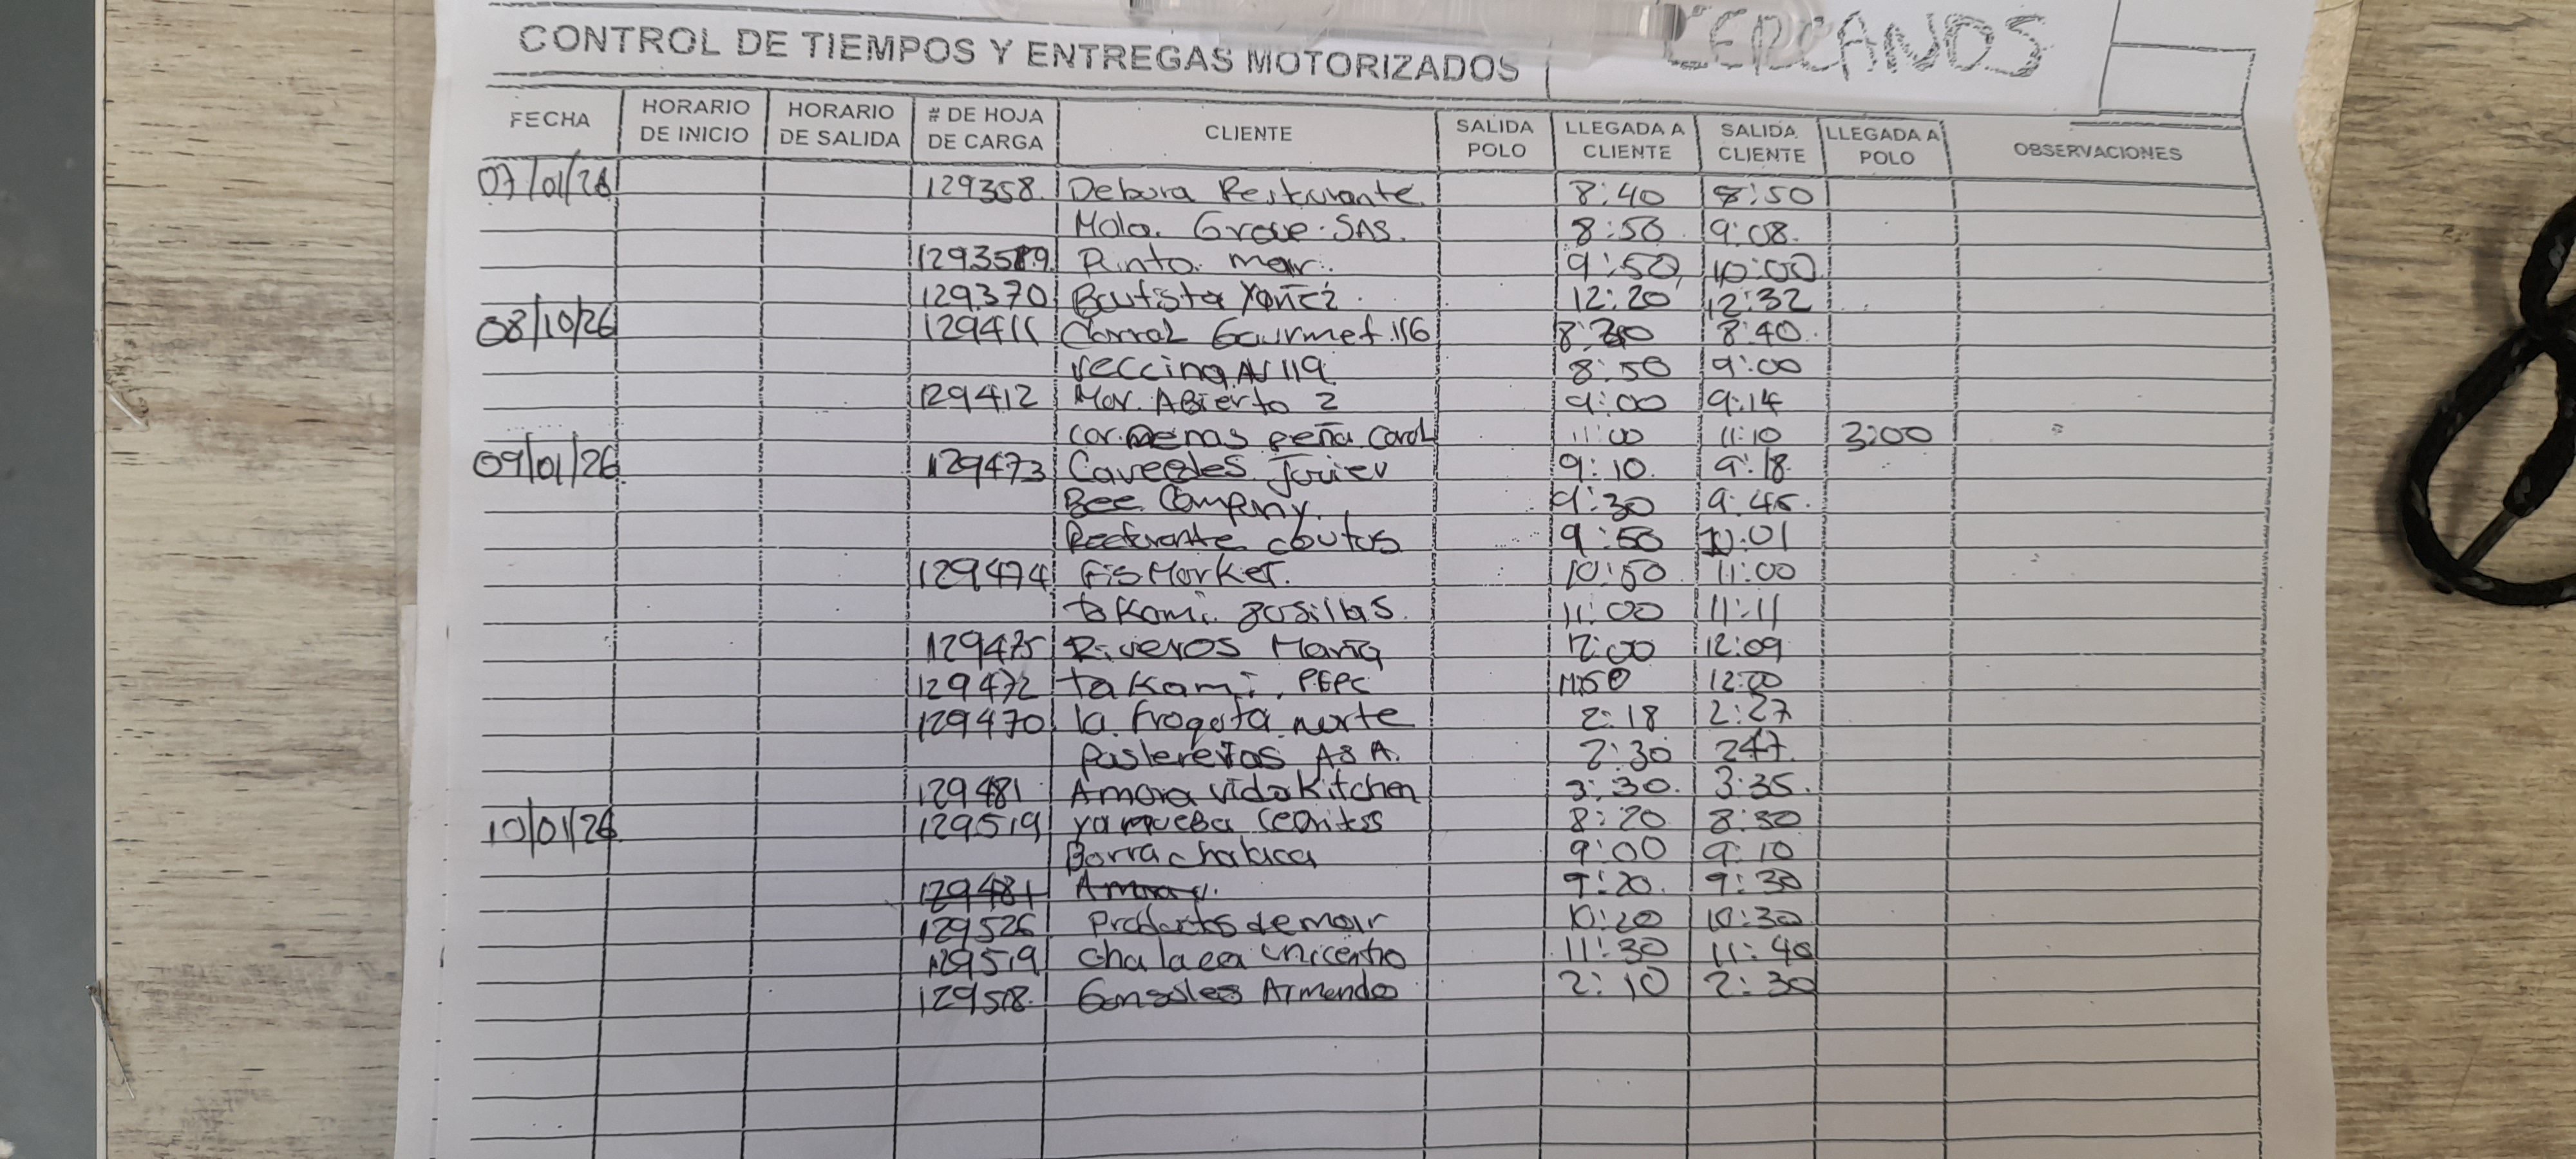 CERCANOS
CONTROL DE TIEMPOS Y ENTREGAS MOTORIZADOS
FECHA HORARIO DE INICIO HORARIO DE SALIDA # DE HOJA DE CARGA CLIENTE SALIDA POLO LLEGADA A CLIENTE SALIDA CLIENTE LLEGADA A POLO OBSERVACIONES
07/01/26 129358. Debora Resturante 8:40 8:50
Mola. Grove. SAS. 8:50 9:08.
Punto. mar. 9:50 10:00
129370 Bautista Yañez. 12:20 12:32
08/10/26 129411 Corral Gourmet 116 8:40
veccina AV 119 8:50 9:00
129412 Mar. Abierto 2 9:00 9:14
peña Carol 11:00 11:10 3:00
09/01/26 129473 Javier 9:10. 9:18
Bee Company. 9:30 9:45.
9:50 10:01
129474 FisMarket. 10:50 11:00
takami. 11:00 11:11
129475 Riveros Maria 12:00 12:09
129472 takami. PEPE 11:50 12:00
129470 la fragata norte 2:18 2:27
A&A. 2:30 247.
129481 Amora vida Kitchen 3:30. 3:35.
10/01/26 129519 8:20 8:30
Barra chalaca 9:00 9:10
129481 9:20. 9:30
129526 Productos de mar 10:20 10:30
129519 chalaca unicentro 11:30 11:40
129518. Gonsales Armando 2:10 2:30